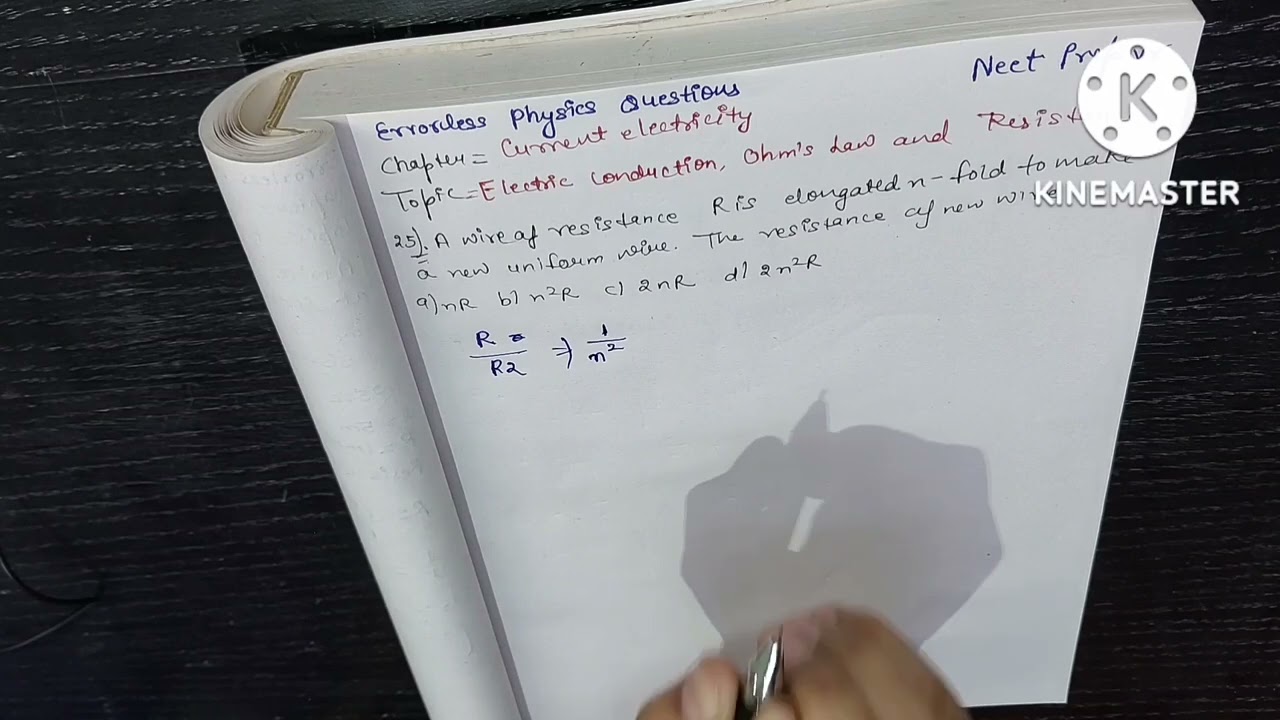 Neet
Errorless Physics Questions
Chapter = Current electricity
Topic = Electric conduction, Ohm's Law and
25). A wire of resistance R is elongated n-fold to make
a new uniform wire. The resistance of new wire
a) nR b) n²R c) 2nR d) 2n²R
R
R2
⇒
1
n²
K
KINEMASTER